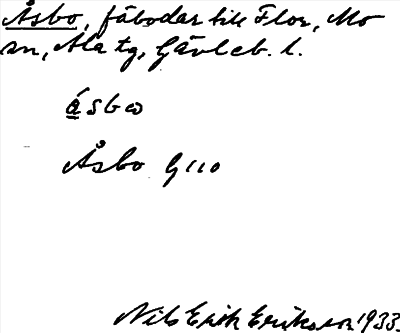 Åsbo, fäbodar till Flor, Mo
sn, Ala tg, Gävleb. l.
ásbω
Åsbo G110
Nils Erik Eriksson 1933.